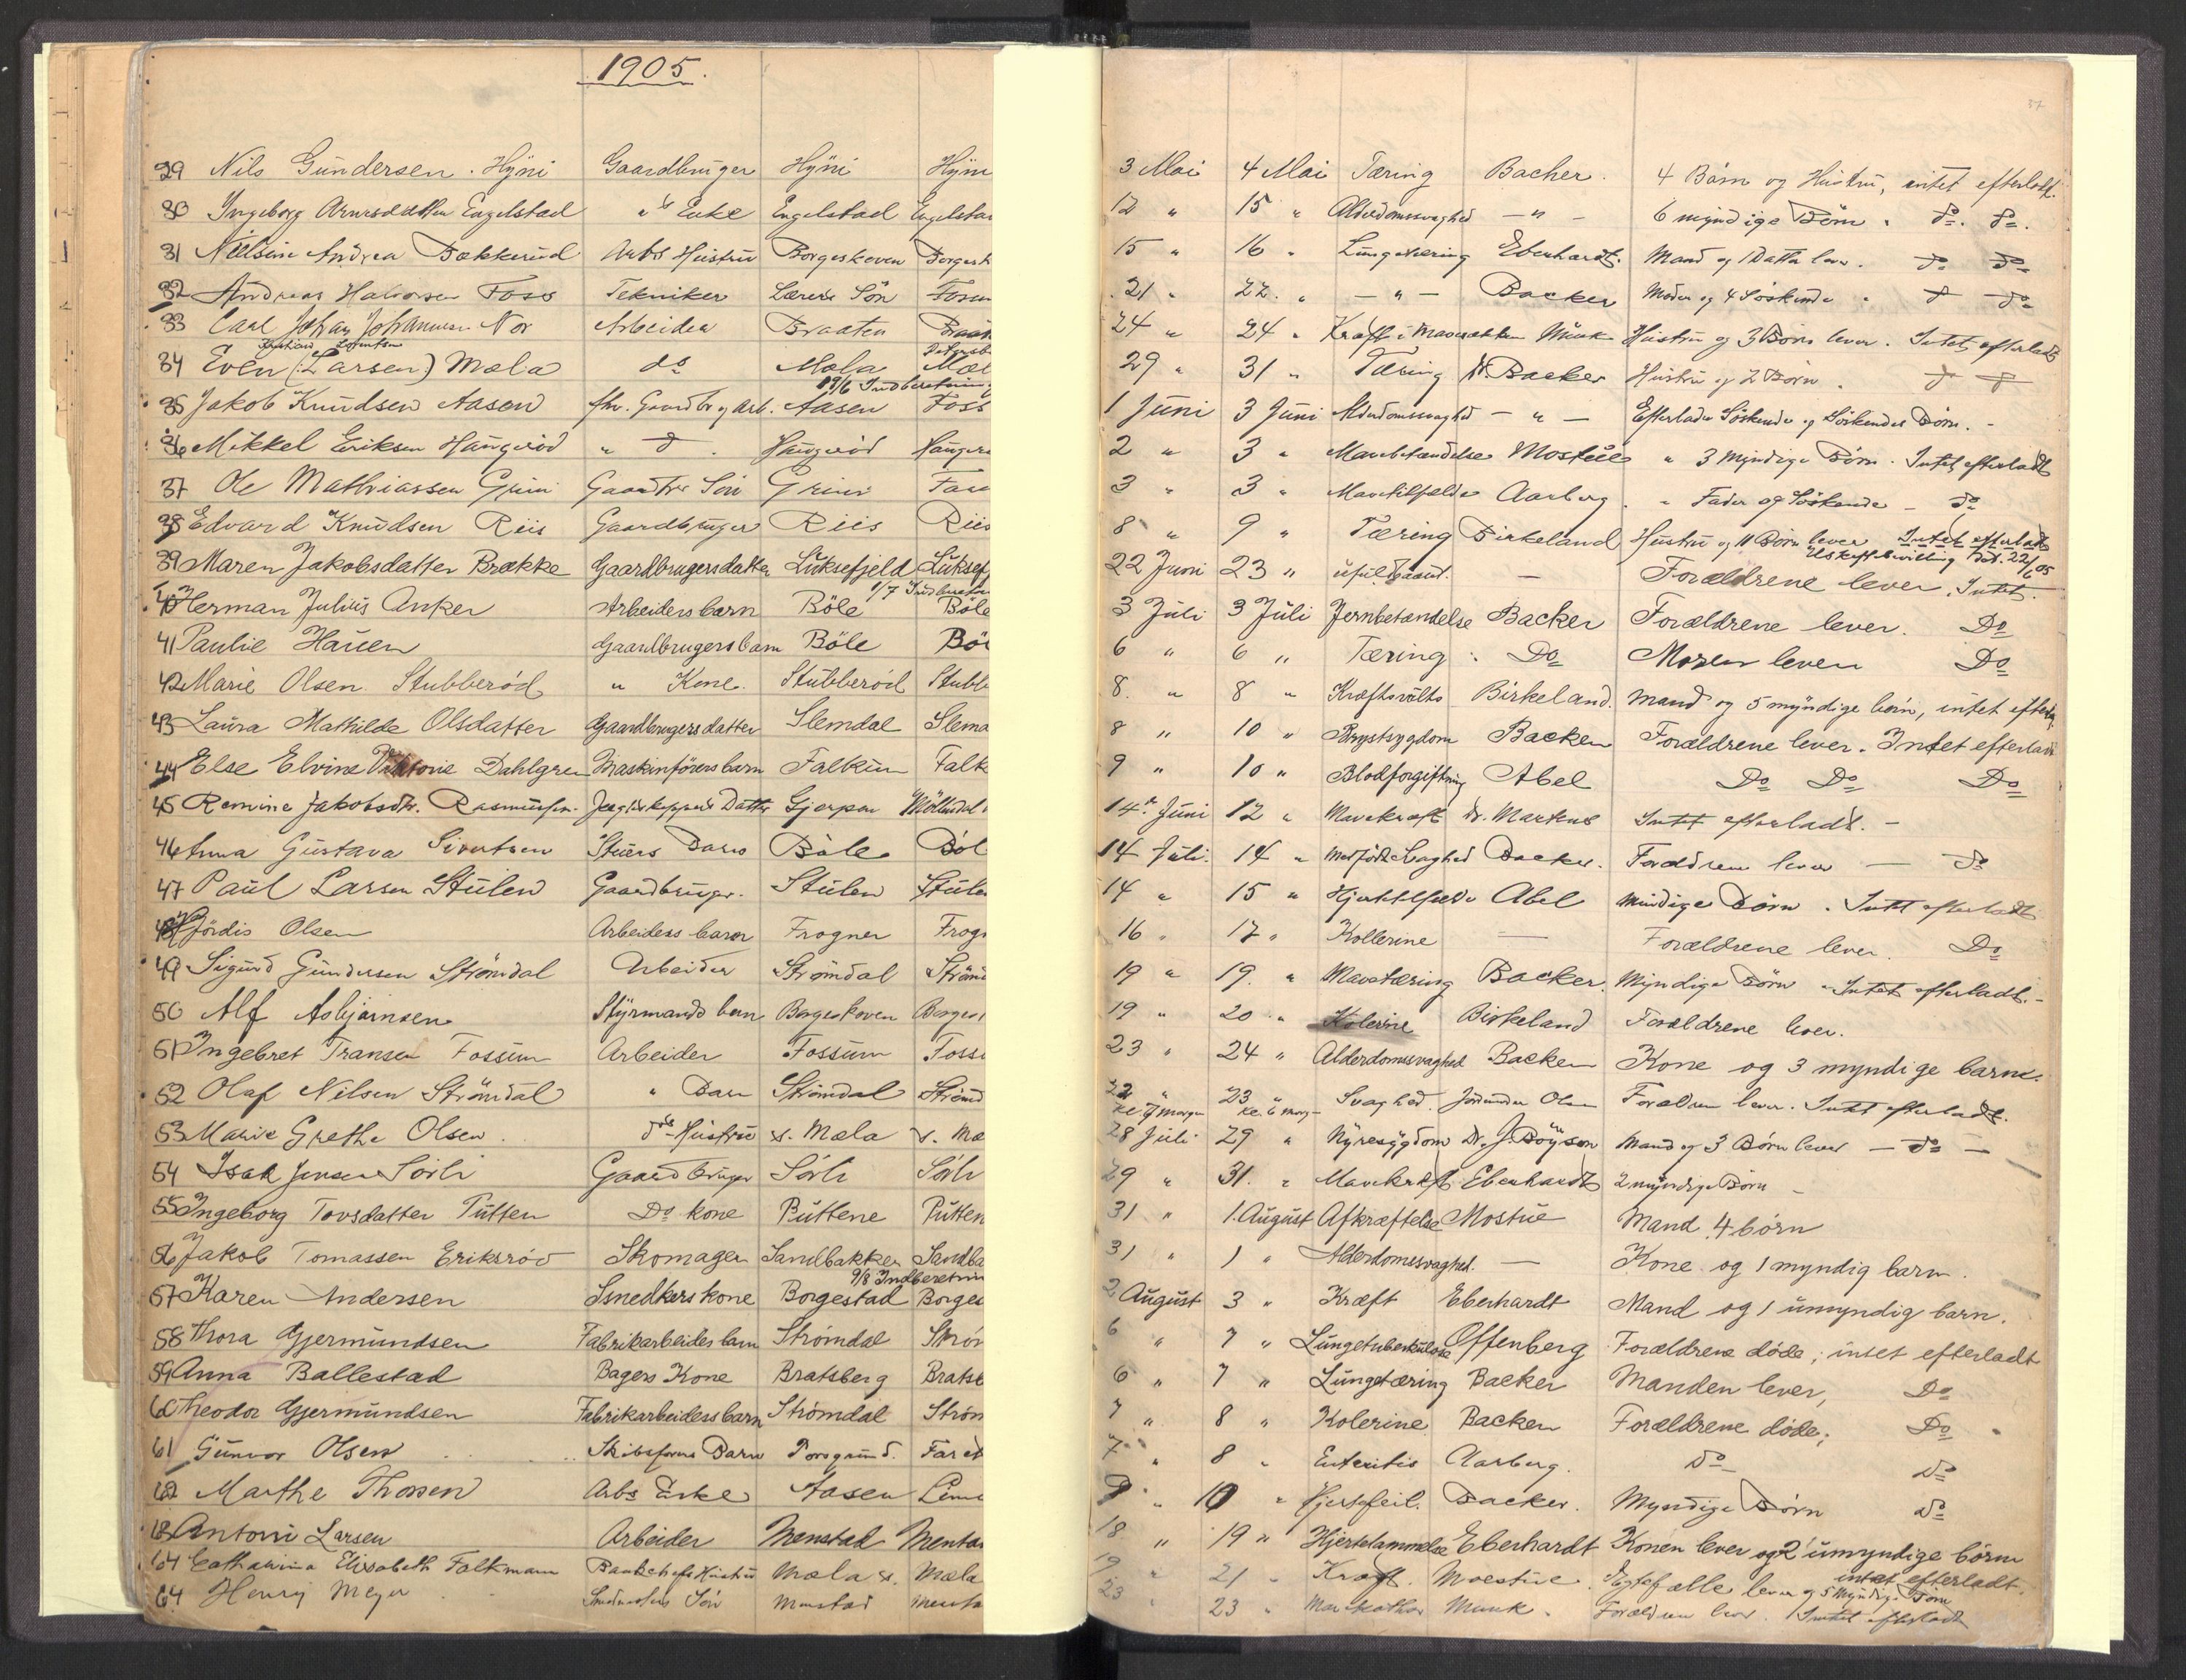 1905.
29 Nils Gundersen. Hyni Gaardbruger Hyni Hyni
30 Ingeborg Engelstad do Enke Engelstad Engelsta
31 Andrea Bakkerud Arbs Hustru Borgeskoven Borgesk
32 Andreas Halvorsen Foss Tekniker Lærers Sön Fossu
33 Carl Johan Johannesen Nor Arbeider Braaten Braat
Kristian Lorentsen
34 Even (: Larsen) Mæla do Mæla Mæl
19/6 Indberetning
35 Jakob Knudsen Aasen fhv. Gaardbr og Arb. Aasen Foss
36 Mikkel Eriksen Haugeröd " do. Haugeröd Hauger
37 Ole Mathiassen Grini Gaardbrs Sön Grini
38 Edvard Knudsen Riis Gaardbruger Riis Riis
39 Maren Jakobsdatter Brække Gaardbrugersdatter Luksefjeld Luksef
1/7 Indberetn
40 Herman Julius Anker Arbeidersbarn Böle Böle
41 Paulie Hauen Gaardbrugersbarn Böle Bö
42 Marie Olsen Stubberöd " Kone. Stubberöd Stubb
43 Laura Mathilde Olsdatter Gaardbrugersdatter Slemdal Slema
44 Else Elvine Viktorie Dahlgren Maskinförersbarn Falkum Falk
45 Remine Jakobsdtr. Rasmussen. Datter Gjerpen Möllerdal
46 Anna Gustava Sivertsen Barn Böle Böl
47 Paul Larsen Stulen Gaardbruger. Stulen Stule
48 Hjördis Olsen Arbeiders barn Frogner Frogn
49 Sigurd Gundersen Strömdal Arbeider Strömdal Ström
50 Alf Asbjörnsen Styrmands barn Borgeskoven Borges
51 Ingebret Transen Fossum Arbeider Fossum Fossu
52 Olaf Nilsen Strömdal " Barn Strömdal Strömd
53 Marie Grethe Olsen do Hustru s. Mæla s. Mæ
54 Isak Jensen Sörli Gaardbruger Sörli Sörli
55 Ingeborg Tovsdatter Putten Do kone Puttene Putten
56 Jakob Tomassen Eriksröd Skomager Sandbakken Sandba
9/8 Indberetnin
57 Karen Andersen Snedkers kone Borgestad Borges
58 Thora Gjermundsen Fabrikarbeiders barn Strömdal Ström
59 Anna Ballestad Bagers Kone Bratsberg Bratsb
60 Theodor Gjermundsen Fabrikarbeidersbarn Strömdal Ström
61 Gunvor Olsen Skibsförers Barn Porsgrund. Faret
62 Marthe Thorsen Arbs Enke Aasen
63 Antoni Larsen Arbeider Menstad Mensta
64 Catharina Elisabeth Falkmann Hustru Mæla s. Mæla
64 Henry Meyer Sön Menstad Mensta
3 Mai 4 Mai Tæring Backer. 4 Börn og Hustru, intet efterladt.
12 " 15 " Alderdomssvaghed — " — 6 myndige Börn. do. do.
15 " 16 " Lungetæring Eberhardt. Mand og 1 Datter lever. do do
21 " 22. " — " — Backer Moder og 4 Söskende. do do
24 " 24 " Kræft i Mavesækken Munk Hustru og 3 Börn lever. Intet efterladt
29 " 31 " Tæring Dr. Backer Hustru og 2 Börn. do do
1 Juni 3 Juni Alderdomssvaghed — " — Efterlader Söskende og Söskendes Börn. -
2 " 3 " Mavebetændelse Mostue " 3 Myndige Börn. Intet efterladt
3 " 3 " Mavetilfælde Aarberg. " Fader og Söskende - do
8 " 9 " Tæring Birkeland Hustru og 11 Börn lever Intet efterladt
Uskiftebevilling dat. 22/6 05
22 Juni 23 " ufuldbaaret. — Forældrene lever. Intet.
3 Juli 3 Juli Jernbetændelse Backer Forældrene lever. Do
6 " 6 " Tæring. Do Moren lever Do
8. " 8 " Kræftsvulst Birkeland. Mand og 5 myndige börn, intet efterla
8 " 10 " Brystsygdom Backer Forældrene lever. Intet efterladt
9 " 10 " Blodforgiftning Abel Do Do Do
14de Juni 12 " Mavekræft Dr. Markus Intet efterladt. -
14 Juli. 14 " Medfödt Svaghed Backer. Forældrene lever — do
14 " 15 " Hjertefeil Abel Myndige Börn. Intet efterladt
16 " 17 " Kollerine — Forældrene lever. Do
19 " 19. " Mavetæring Backer. Myndige Börn. Intet efterladt. -
19 " 20 " Kolerine Birkeland Forældrene lever.
23 " 24 " Alderdomssvaghed Backer Kone og 3 myndige barn.
22 " 23 " Svaghed. Jordmoder Olsen Forældrene lever. Intet efterladt.
Kl. 9 morgen Kl. 6 morg-
28 Juli 29 " Nyresygdom Dr. J. Böyson Mand og 3 Börn lever — do —
29 " 31. " Mavekræft Eberhardt 2 myndige Börn -
31 " 1. August Afkræftelse Mostue Mand 4 börn
31 " 1 " Alderdomssvaghed. — Kone og 1 myndig barn.
2 August 3 " Kræft Eberhardt Mand og 1 umyndig barn.
6 " 7 " Lungetuberkulose Offenberg Forældrene döde; intet efterladt
6 " 7 " Lungetæring Backer Manden lever, Do
7 " 8 " Kolerine Backer Forældrene döde; Do
7 " 8 " Enteritis Aarberg. do do
9 " 10 " Hjertefeil. Backer. Myndige Börn do
18 " 19 " Hjertelammelse Eberhardt Konen lever og 2 umyndige börn
intet efterladt.
19 " 21 " Kræft. Moestue. Ægtefælle lever og 5 Myndige Börn
23 " 23 " Munk. Forældrene lever. Intet efterladt